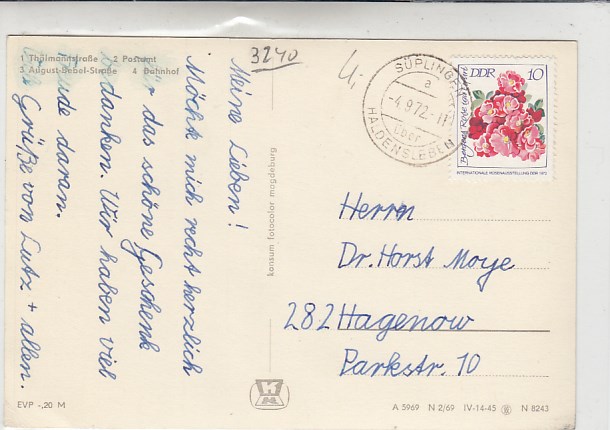 1 Thälmannstraße 2 Postamt
3 August-Bebel-Straße 4 Bahnhof
3240
Meine Lieben!
Möchte mich recht herzlich
das schöne Geschenk
danken. Wir haben viel
Freude daran.
Grüße von Lutz + allen.
konsum fotocolor magdeburg
EVP -,20 M
SÜPLINGEN
a
-4.9.72.-11
über
HALDENSLEBEN
DDR 10
INTERNATIONALE ROSENAUSSTELLUNG DDR 1972
Herrn
Dr. Horst Moye
282 Hagenow
Parkstr. 10
A 5969 N 2/69 IV-14-45 N 8243